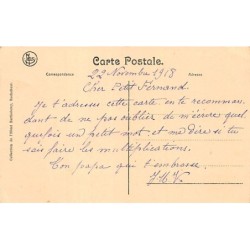 Carte Postale.
Correspondance
Adresse
22 Novembre 1918
Cher petit Fernand
Je t'adresse cette carte, en te recomman-
dant de ne pas oublier de m'écrire quel
quefois un petit mot, et me dire si tu
sais faire les multiplications.
Ton papa qui t'embrasse